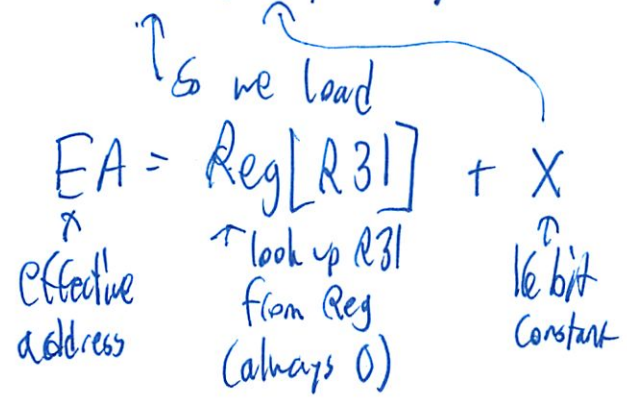 So we load
EA = Reg[R31] + X
effective
address
look up R31
from Reg
(always 0)
16 bit
constant